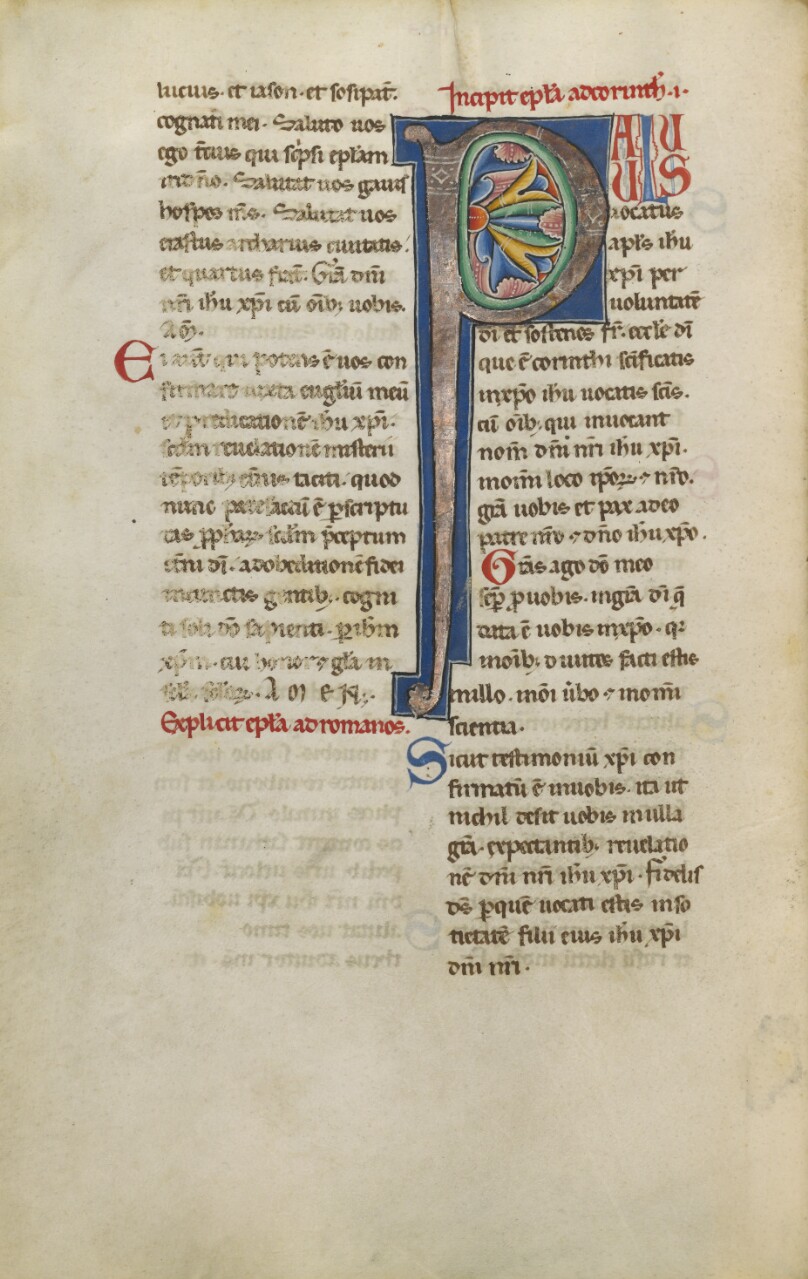 lucius· et iason· et sosipat̄.
cognati mei· Saluto uos
ego t̄cius qui sc̄psi ep̄lam
in dn̄o. Salutat uos gaius
hospes m̄s. Salutat uos
erastus archarius ciuitatis.
et quartus frat̄. Gr̄a dm̄i
nr̄i ih̄u xp̄i cū oīb; uobis.
am̄.
Ei autē qui potens ē uos con
firmare iuxta euḡliū meū
et predicationē ih̄u xp̄i.
sc̄dm reuelationē misterii
tēporib; et̄nis taciti. quod
nunc patefactū ē p̱scriptu
ras ꝓph̄aꝝ sc̄dm p̄ceptum
et̄ni dī· ad obeditionē fidei
in cunctis gentib;. cogni
ti soli dō sapienti· p̱ ih̄m
xp̄m· cui honor ⁊ gl̄a in
A M E N.
Explicit ep̄la ad romanos.
Incipit ep̄la ad corinth̄·i·
PAULUS
uocatus
apl̄s ih̄u
xp̄i per
uoluntatē
dī et sostenes fr̄. eccl̄e dī
que ē corinthi sc̄ificatis
in xp̄o ih̄u uocatis sc̄is.
cū oīb; qui inuocant
nom̄ dn̄i nr̄i ih̄u xp̄i.
in om̄i loco ip̄oꝝ ⁊ nr̄o.
gr̄a uobis et pax a deo
patre nr̄o ⁊ dn̄o ih̄u xp̄o.
Gr̄as ago dō meo
sēp̱ ꝓ uobis· in gr̄a dī q̄
data ē uobis in xp̄o· q;
in oīb; diuites facti estis
in illo· in oī ūbo ⁊ in om̄i
scientia·
Sicut testimoniū xp̄i con
firmatū ē in uobis· ita ut
nichil desit uobis in ulla
gr̄a· expectantib; reuelatio
nē dn̄i nr̄i ih̄u xp̄i· fidelis
dē p̱ quē uocati estis in so
cietatē filii eius ih̄u xp̄i
dn̄i nr̄i·